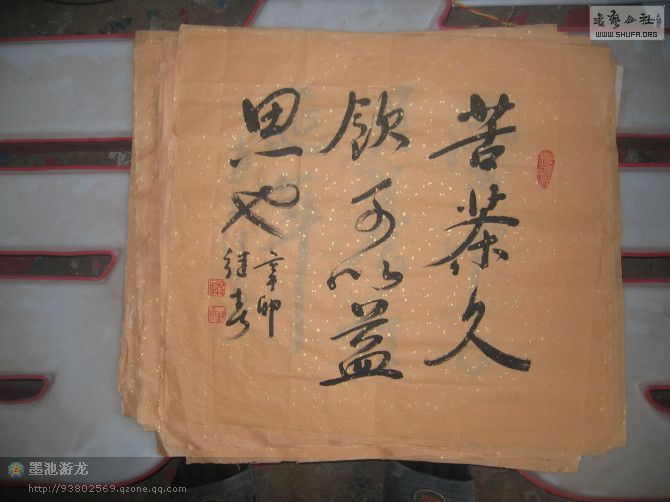 苦茶久
饮可以益
思也
辛卯
继奇
书艺公社
WWW.SHUFA.ORG
墨池游龙
http://93802569.qzone.qq.com